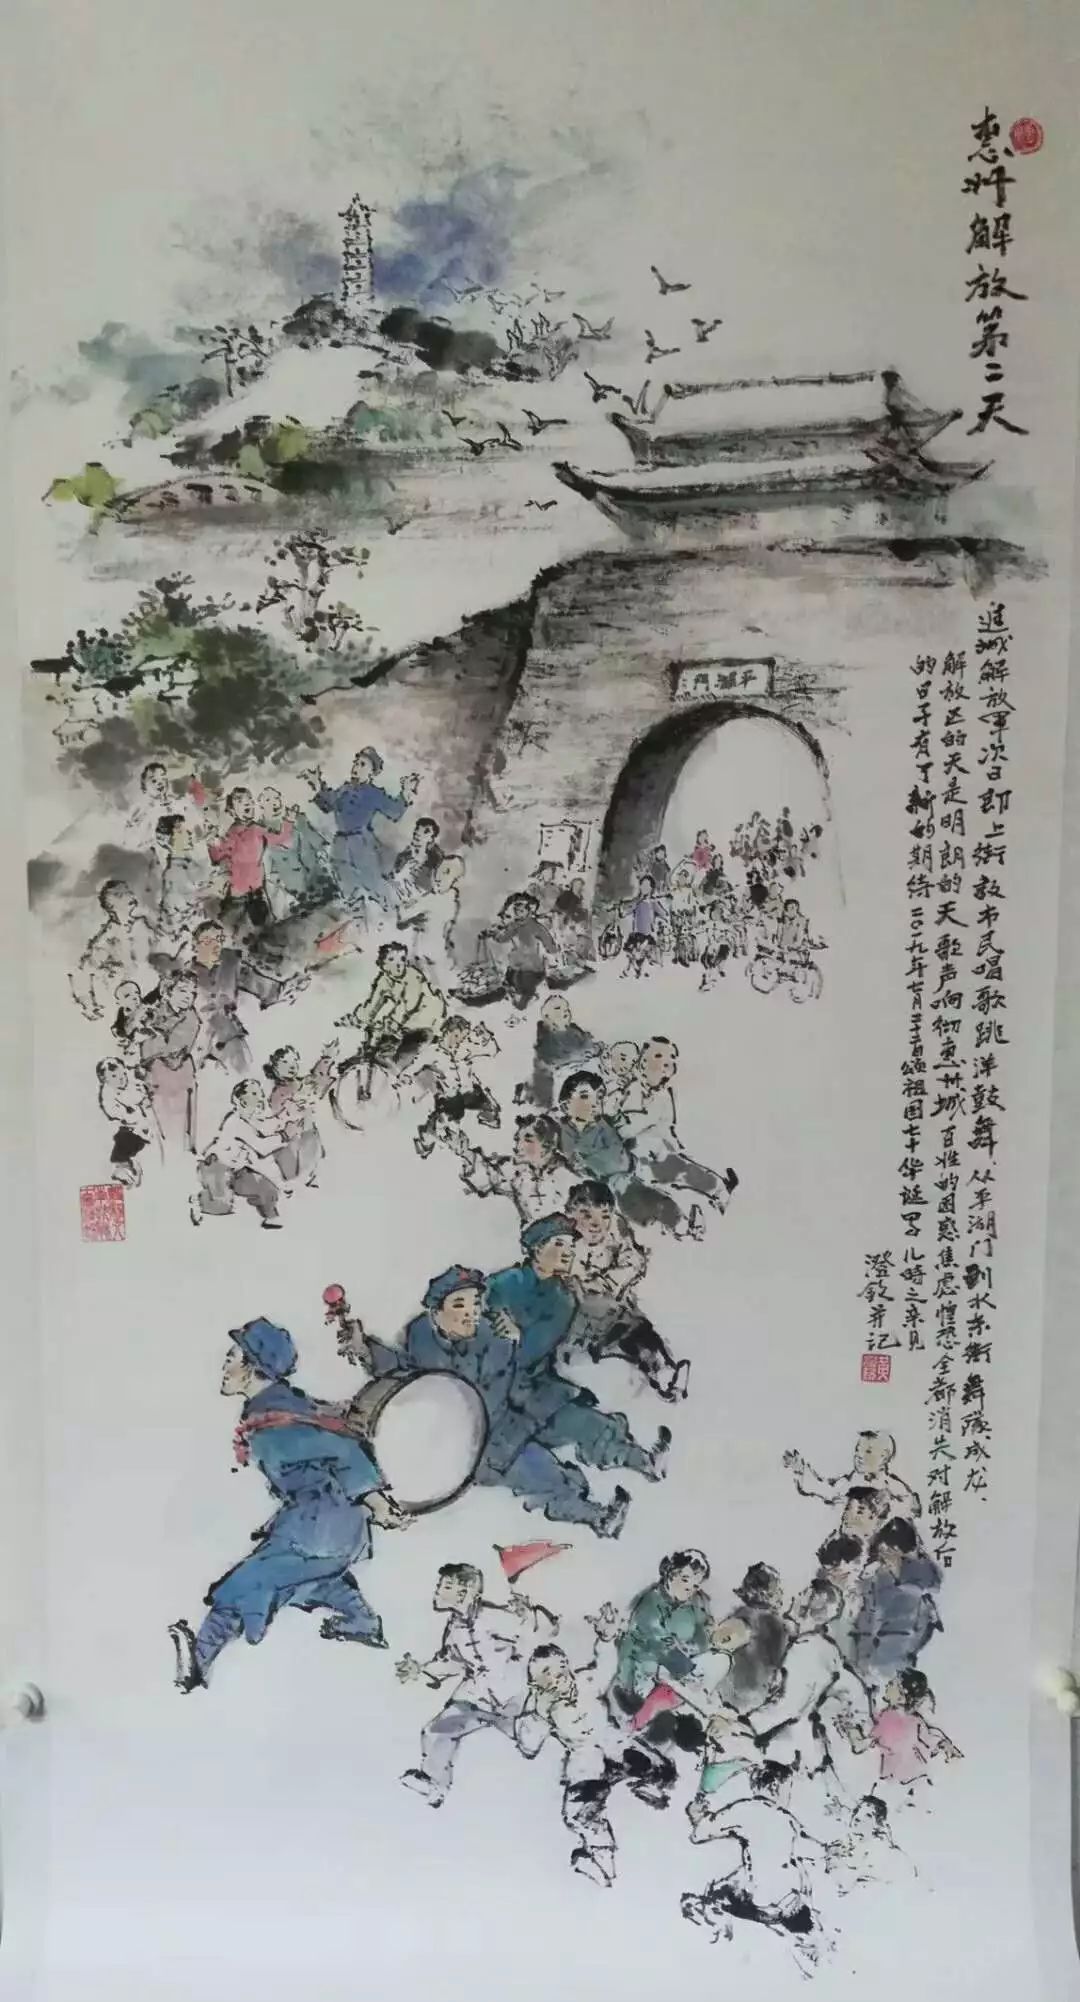 惠州解放第二天
進城解放军次日即上街教市民唱歌跳洋鼓舞、从平湖门到水东街舞队成龙、
解放区的天是明朗的天歌声响彻惠州城百姓的困惑焦虑惶恐全都消失对解放后
的日子有了新的期待二〇一九年七月二十二日颂祖国七十华诞畧儿時之亲见
澄钦并记
平湖門